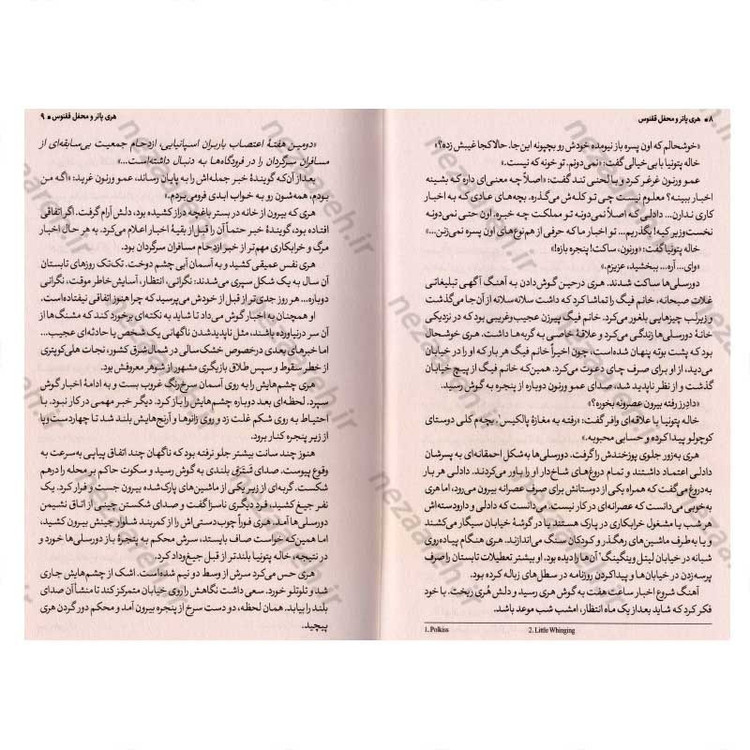 ۸ • هری پاتر و محفل ققنوس
«خوشحالم که اون پسره باز نیومده خودش رو بچپونه این‌جا. حالا کجا غیبش زده؟»
خاله پتونیا با بی‌خیالی گفت: «نمی‌دونم. تو خونه که نیست.»
عمو ورنون غرغر کرد و با لحنی تند گفت: «اصلاً چه معنی‌ای داره که بشینه
اخبار ببینه؟ معلوم نیست چی تو کله‌ش می‌گذره. بچه‌های عادی که به اخبار
کاری ندارن... دادلی که اصلاً نمی‌دونه تو مملکت چه خبره. اون حتی نمی‌دونه
نخست‌وزیر کیه! بگذریم... تو اخبار ما که حرفی از هم‌نوع‌های اون پسره نمی‌زنن...»
خاله پتونیا گفت: «ورنون، ساکت! پنجره بازه!»
«وای... آره... ببخشید، عزیزم.»
دورسلی‌ها ساکت شدند. هری درحین گوش‌دادن به آهنگ آگهی تبلیغاتی
غلات صبحانه، خانم فیگ را تماشا کرد که داشت سلانه‌سلانه از آن‌جا می‌گذشت
و زیرلب چیزهایی بلغور می‌کرد. خانم فیگ پیرزن عجیب‌وغریبی بود که در نزدیکی
خانهٔ دورسلی‌ها زندگی می‌کرد و علاقهٔ خاصی به گربه‌ها داشت. هری خوشحال
بود که پشت بوته پنهان شده‌است، چون اخیراً خانم فیگ هر بار که او را در خیابان
می‌دید، از او برای صرف چای دعوت می‌کرد. همین‌که خانم فیگ از پیچ خیابان
گذشت و از نظر ناپدید شد، صدای عمو ورنون دوباره از پنجره به گوش رسید.
«دادرز رفته بیرون عصرونه بخوره؟»
خاله پتونیا با علاقه‌ای وافر گفت: «رفته به مغازهٔ پالکیس¹. بچه‌م کلی دوستای
کوچولو پیدا کرده و حسابی محبوبه.»
هری به‌زور جلوی پوزخندش را گرفت. دورسلی‌ها به‌شکل احمقانه‌ای به پسرشان
دادلی اعتماد داشتند و تمام دروغ‌های شاخ‌دار او را باور می‌کردند. دادلی هر بار
به‌دروغ می‌گفت که همراه یکی از دوستانش برای صرف عصرانه بیرون می‌رود، اما هری
به‌خوبی می‌دانست که عصرانه‌ای در کار نیست. می‌دانست که دادلی و دارودسته‌اش
هر شب یا مشغول خرابکاری در پارک هستند یا در گوشهٔ خیابان سیگار می‌کشند
و یا به‌طرف ماشین‌های رهگذر و کودکان سنگ می‌اندازند. هری هنگام پیاده‌روی
شبانه در خیابان لیتل وینگینگ² آن‌ها را دیده بود. او بیشتر تعطیلات تابستان را صرف
پرسه‌زدن در خیابان‌ها و پیداکردن روزنامه در سطل‌های زباله کرده بود.
آهنگ شروع اخبار ساعت هفت به گوش هری رسید و دلش هُری ریخت. با خود
فکر کرد که شاید بعد از یک ماه انتظار، امشب شب موعد باشد.
1. Polkiss 2. Little Whinging
هری پاتر و محفل ققنوس • ۹
«دومین هفتهٔ اعتصاب باربران اسپانیایی، ازدحام جمعیت بی‌سابقه‌ای از
مسافران سرگردان را در فرودگاه‌ها به دنبال داشته‌است...»
بعد از آن‌که گویندهٔ خبر جمله‌اش را به پایان رساند، عمو ورنون غرید: «اگه من
بودم، همه‌شون رو به خواب ابدی فرو می‌بردم.»
هری که بیرون از خانه در بستر باغچه دراز کشیده بود، دلش آرام گرفت. اگر اتفاقی
افتاده بود، گویندهٔ خبر حتماً آن را قبل از بقیهٔ اخبار اعلام می‌کرد. به هر حال اخبار
مرگ و خرابکاری مهم‌تر از خبر ازدحام مسافران سرگردان بود.
هری نفس عمیقی کشید و به آسمان آبی چشم دوخت. تک‌تک روزهای تابستان
آن سال به یک شکل سپری می‌شدند: نگرانی، انتظار، آسایش خاطر موقت، نگرانی
دوباره... هر روز جدی‌تر از قبل از خودش می‌پرسید که چرا هنوز اتفاقی نیفتاده‌است.
او همچنان به اخبار گوش می‌داد تا شاید به نکته‌ای برخورد کند که مشنگ‌ها از
آن سر درنیاورده باشند، مثل ناپدیدشدن ناگهانی یک شخص یا حادثه‌ای عجیب...
اما خبرهای بعدی درخصوص خشک‌سالی در شمال شرق کشور، نجات هلی‌کوپتری
از خطر سقوط و سپس طلاق بازیگری مشهور از شوهر معروفش بود.
هری چشم‌هایش را به روی آسمان سرخ‌رنگ غروب بست و به ادامهٔ اخبار گوش
سپرد. لحظه‌ای بعد دوباره چشم‌هایش را باز کرد. دیگر خبر مهمی در کار نبود. با
احتیاط به روی شکم غلت زد و روی زانوها و آرنج‌هایش بلند شد تا چهاردست‌وپا
از زیر پنجره کنار برود.
هنوز چند سانت بیشتر جلو نرفته بود که ناگهان چند اتفاق پیاپی به‌سرعت به
وقوع پیوست. صدای تَرَق بلندی به گوش رسید و سکوت حاکم بر محله را درهم
شکست. گربه‌ای از زیر یکی از ماشین‌های پارک‌شده بیرون جست و فرار کرد. یک
نفر جیغ کشید، فرد دیگری ناسزا گفت و صدای شکستن چینی از اتاق نشیمن
دورسلی‌ها آمد. هری فوراً چوب‌دستی‌اش را از کمربند شلوار جینش بیرون کشید،
اما همین‌که خواست صاف بایستد، سرش محکم به پنجرهٔ باز دورسلی‌ها خورد و
در نتیجه، خاله پتونیا بلندتر از قبل جیغ‌وداد کرد.
هری حس می‌کرد سرش از وسط دو نیم شده‌است. اشک از چشم‌هایش جاری
شد و تلوتلو خورد. سعی داشت نگاهش را روی خیابان متمرکز کند تا منشأ آن صدای
بلند را بیابد. همان لحظه، دو دست سرخ از پنجره بیرون آمد و محکم دور گردن هری
پیچید.
nezaareh.ir